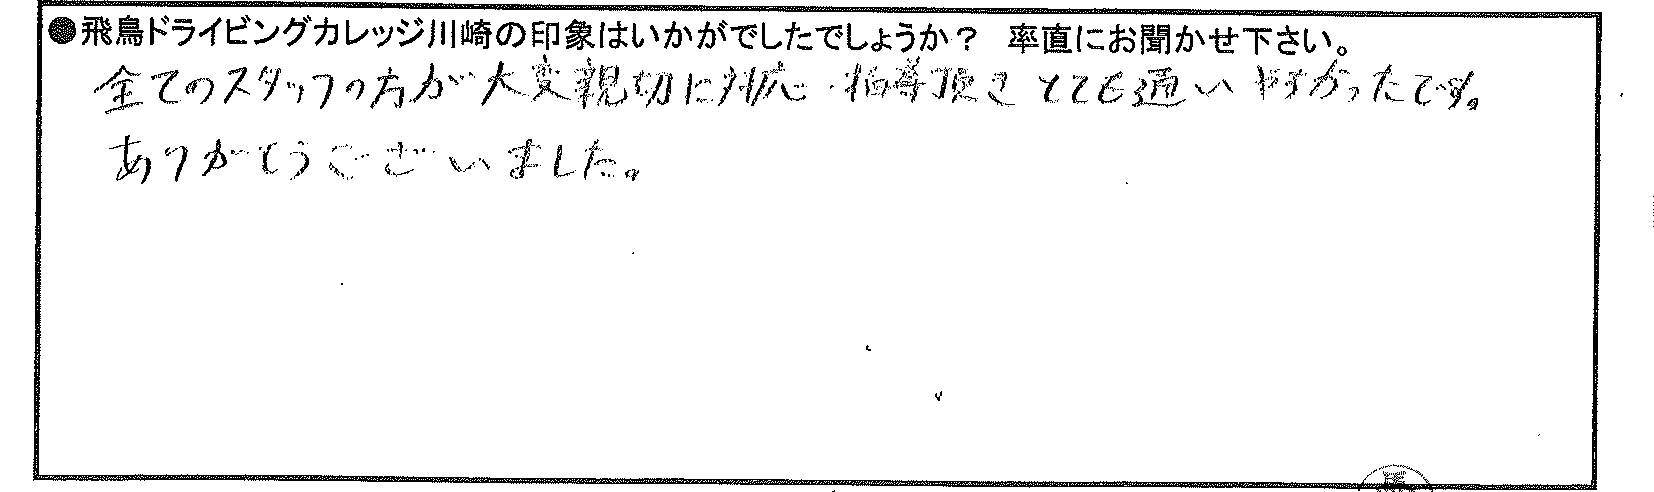 ●飛鳥ドライビングカレッジ川崎の印象はいかがでしたでしょうか？ 率直にお聞かせ下さい。
全てのスタッフの方が大変親切に対応・指導頂きとても通いやすかったです。
ありがとうございました。